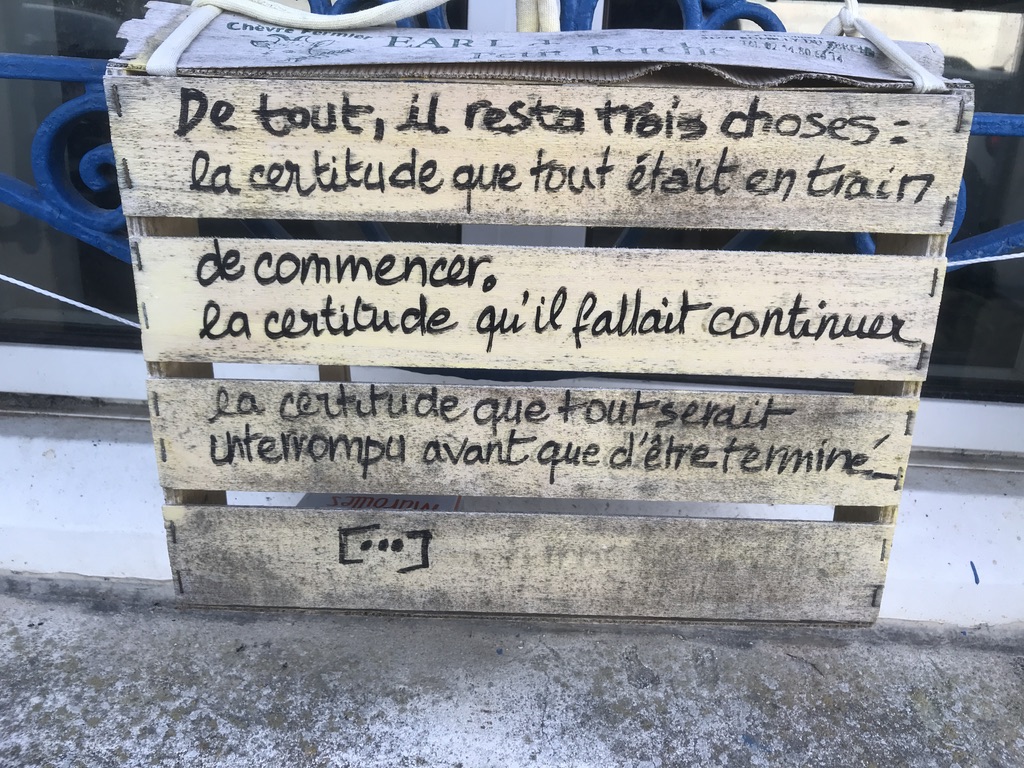 Chèvre Fermier
EARL
Petit Perche
De tout, il resta trois choses:
la certitude que tout était en train
de commencer.
la certitude qu'il fallait continuer
la certitude que tout serait
interrompu avant que d'être terminé_
[...]